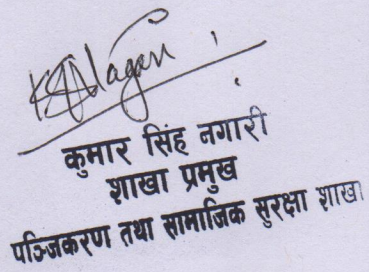 KSNagari
कुमार सिंह नगारी
शाखा प्रमुख
पञ्जिकरण तथा सामाजिक सुरक्षा शाखा